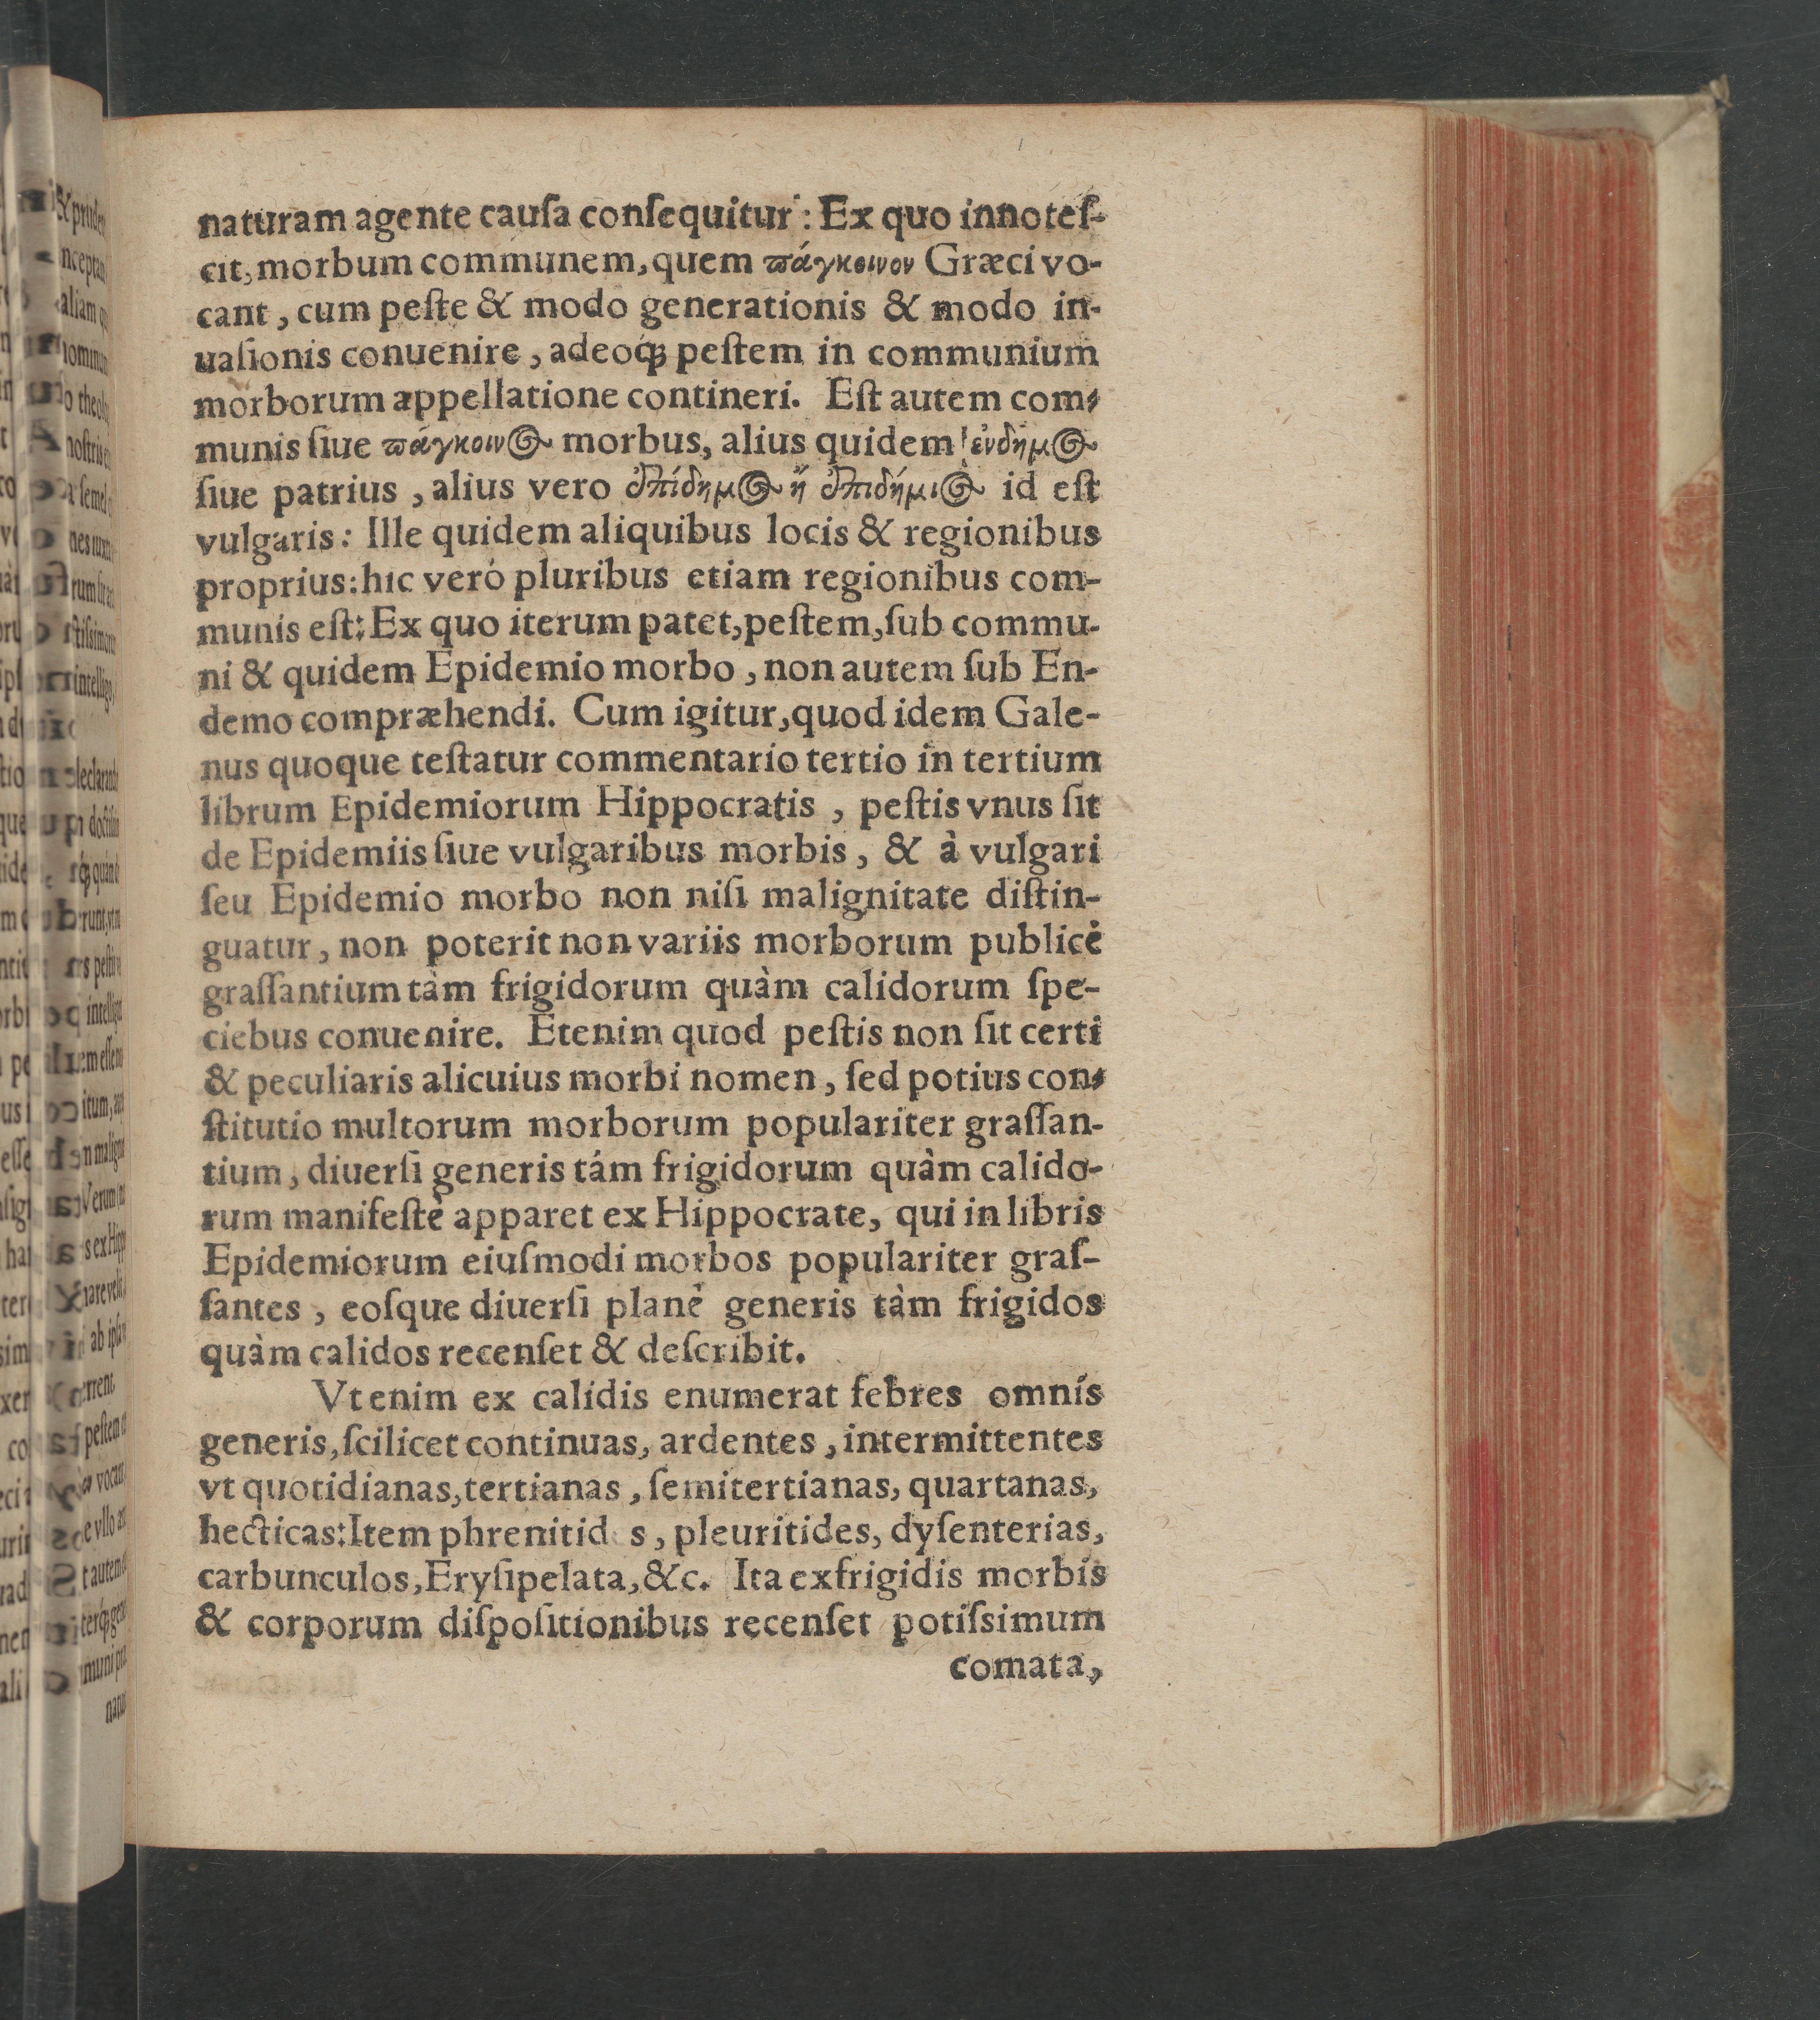 naturam agente cauſa conſequitur: Ex quo innoteſ-
cit, morbum communem, quem πάγκοινον Græci vo-
cant, cum peſte & modo generationis & modo in-
uaſionis conuenire, adeoq́; peſtem in communium
morborum appellatione contineri. Eſt autem com-
munis ſiue πάγκοινος morbus, alius quidem ἐνδημος
ſiue patrius, alius vero ἐπίδημος ἢ ἐπιδήμιος id eſt
vulgaris: Ille quidem aliquibus locis & regionibus
proprius: hic veró pluribus etiam regionibus com-
munis eſt: Ex quo iterum patet, peſtem, ſub commu-
ni & quidem Epidemio morbo, non autem ſub En-
demo compræhendi. Cum igitur, quod idem Gale-
nus quoque teſtatur commentario tertio in tertium
librum Epidemiorum Hippocratis, peſtis vnus ſit
de Epidemiis ſiue vulgaribus morbis, & à vulgari
ſeu Epidemio morbo non niſi malignitate diſtin-
guatur, non poterit non variis morborum publicè
graſſantium tàm frigidorum quàm calidorum ſpe-
ciebus conuenire. Etenim quod peſtis non ſit certi
& peculiaris alicuius morbi nomen, ſed potius con-
ſtitutio multorum morborum populariter graſſan-
tium, diuerſi generis tám frigidorum quàm calido-
rum manifeſtè apparet ex Hippocrate, qui in libris
Epidemiorum eiuſmodi morbos populariter graſ-
ſantes, eoſque diuerſi planè generis tàm frigidos
quàm calidos recenſet & deſcribit.
Vt enim ex calidis enumerat febres omnis
generis, ſcilicet continuas, ardentes, intermittentes
vt quotidianas, tertianas, ſemitertianas, quartanas,
hecticas: Item phrenitid s, pleuritides, dyſenterias,
carbunculos, Eryſipelata, &c. Ita ex frigidis morbis
& corporum diſpoſitionibus recenſet potiſsimum
comata,